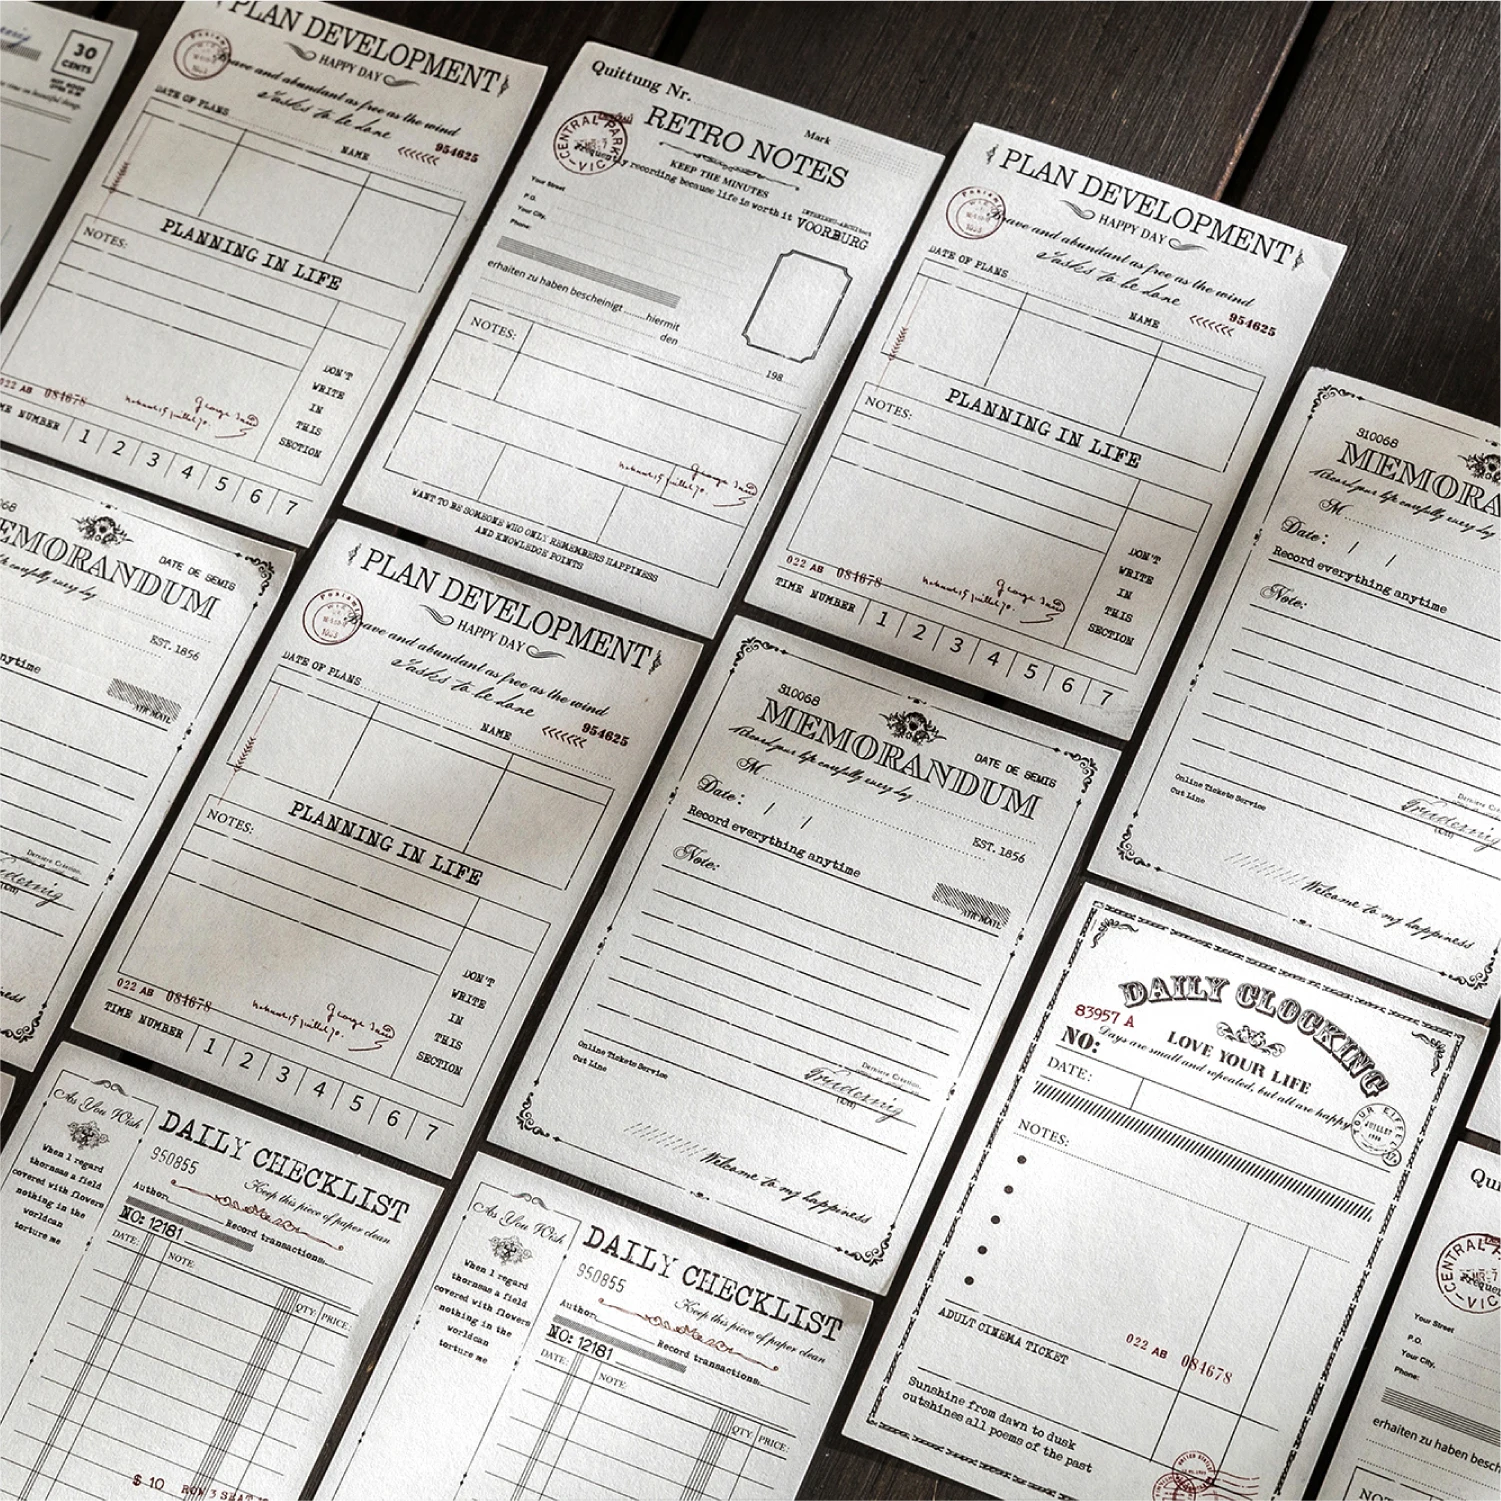 30
CENTS
PLAN DEVELOPMENT
HAPPY DAY
Brave and abundant as free as the wind
Tasks to be done
DATE OF PLANS
NAME
954625
PLANNING IN LIFE
NOTES:
DON'T
WRITE
IN
THIS
SECTION
022 AB 084678
George Sand
TIME NUMBER 1 2 3 4 5 6 7
Quittung Nr.
Mark
RETRO NOTES
CENTRAL PARK
VIC
KEEP THE MINUTES
Frequently recording because life is worth it
VOORBURG
Your Street
P.O.
Your City,
Phone:
erhalten zu haben bescheinigt.......hiermit
den
198
NOTES:
George Sand
WANT TO BE SOMEONE WHO ONLY REMEMBERS HAPPINESS
AND KNOWLEDGE POINTS
PLAN DEVELOPMENT
HAPPY DAY
Brave and abundant as free as the wind
Tasks to be done
DATE OF PLANS
NAME
954625
PLANNING IN LIFE
NOTES:
DON'T
WRITE
IN
THIS
SECTION
022 AB 084678
George Sand
TIME NUMBER 1 2 3 4 5 6 7
310068
MEMORA
Record your life carefully every day
M
Date: / /
Record everything anytime
Note:
Online Tickets Service
Cut Line
Welcome to my happiness
68
EMORANDUM
DATE DE SEMIS
carefully every day
EST. 1856
nytime
AIR MAIL
Derniere Creation.
PLAN DEVELOPMENT
HAPPY DAY
Brave and abundant as free as the wind
Tasks to be done
DATE OF PLANS
NAME
954625
PLANNING IN LIFE
NOTES:
DON'T
WRITE
IN
THIS
SECTION
022 AB 084678
George Sand
TIME NUMBER 1 2 3 4 5 6 7
310068
MEMORANDUM
DATE DE SEMIS
Record your life carefully every day
M
Date: / /
EST. 1856
Record everything anytime
AIR MAIL
Note:
Online Tickets Service
Cut Line
Derniere Creation.
Welcome to my happiness
DAILY CLOCKING
83957 A
LOVE YOUR LIFE
NO:
Days are small and repeated, but all are happy
DATE:
JUILLET
NOTES:
ADULT CINEMA TICKET
022 AB 084678
Sunshine from dawn to dusk
outshines all poems of the past
As You Wish
When I regard
thornsas a field
covered with flowers
nothing in the
worldcan
torture me
DAILY CHECKLIST
950855
Keep this piece of paper clean
Author
Record transactions
NO: 12181
DATE:
NOTE
QTY
PRICE:
$ 10
As You Wish
When I regard
thornsas a field
covered with flowers
nothing in the
worldcan
torture me
DAILY CHECKLIST
950855
Keep this piece of paper clean
Author
Record transactions
NO: 12181
DATE:
NOTE
QTY
PRICE:
Qu
CENTRAL
VIC
Your Street
P.O.
Your City,
Phone:
erhalten zu haben besch
NO